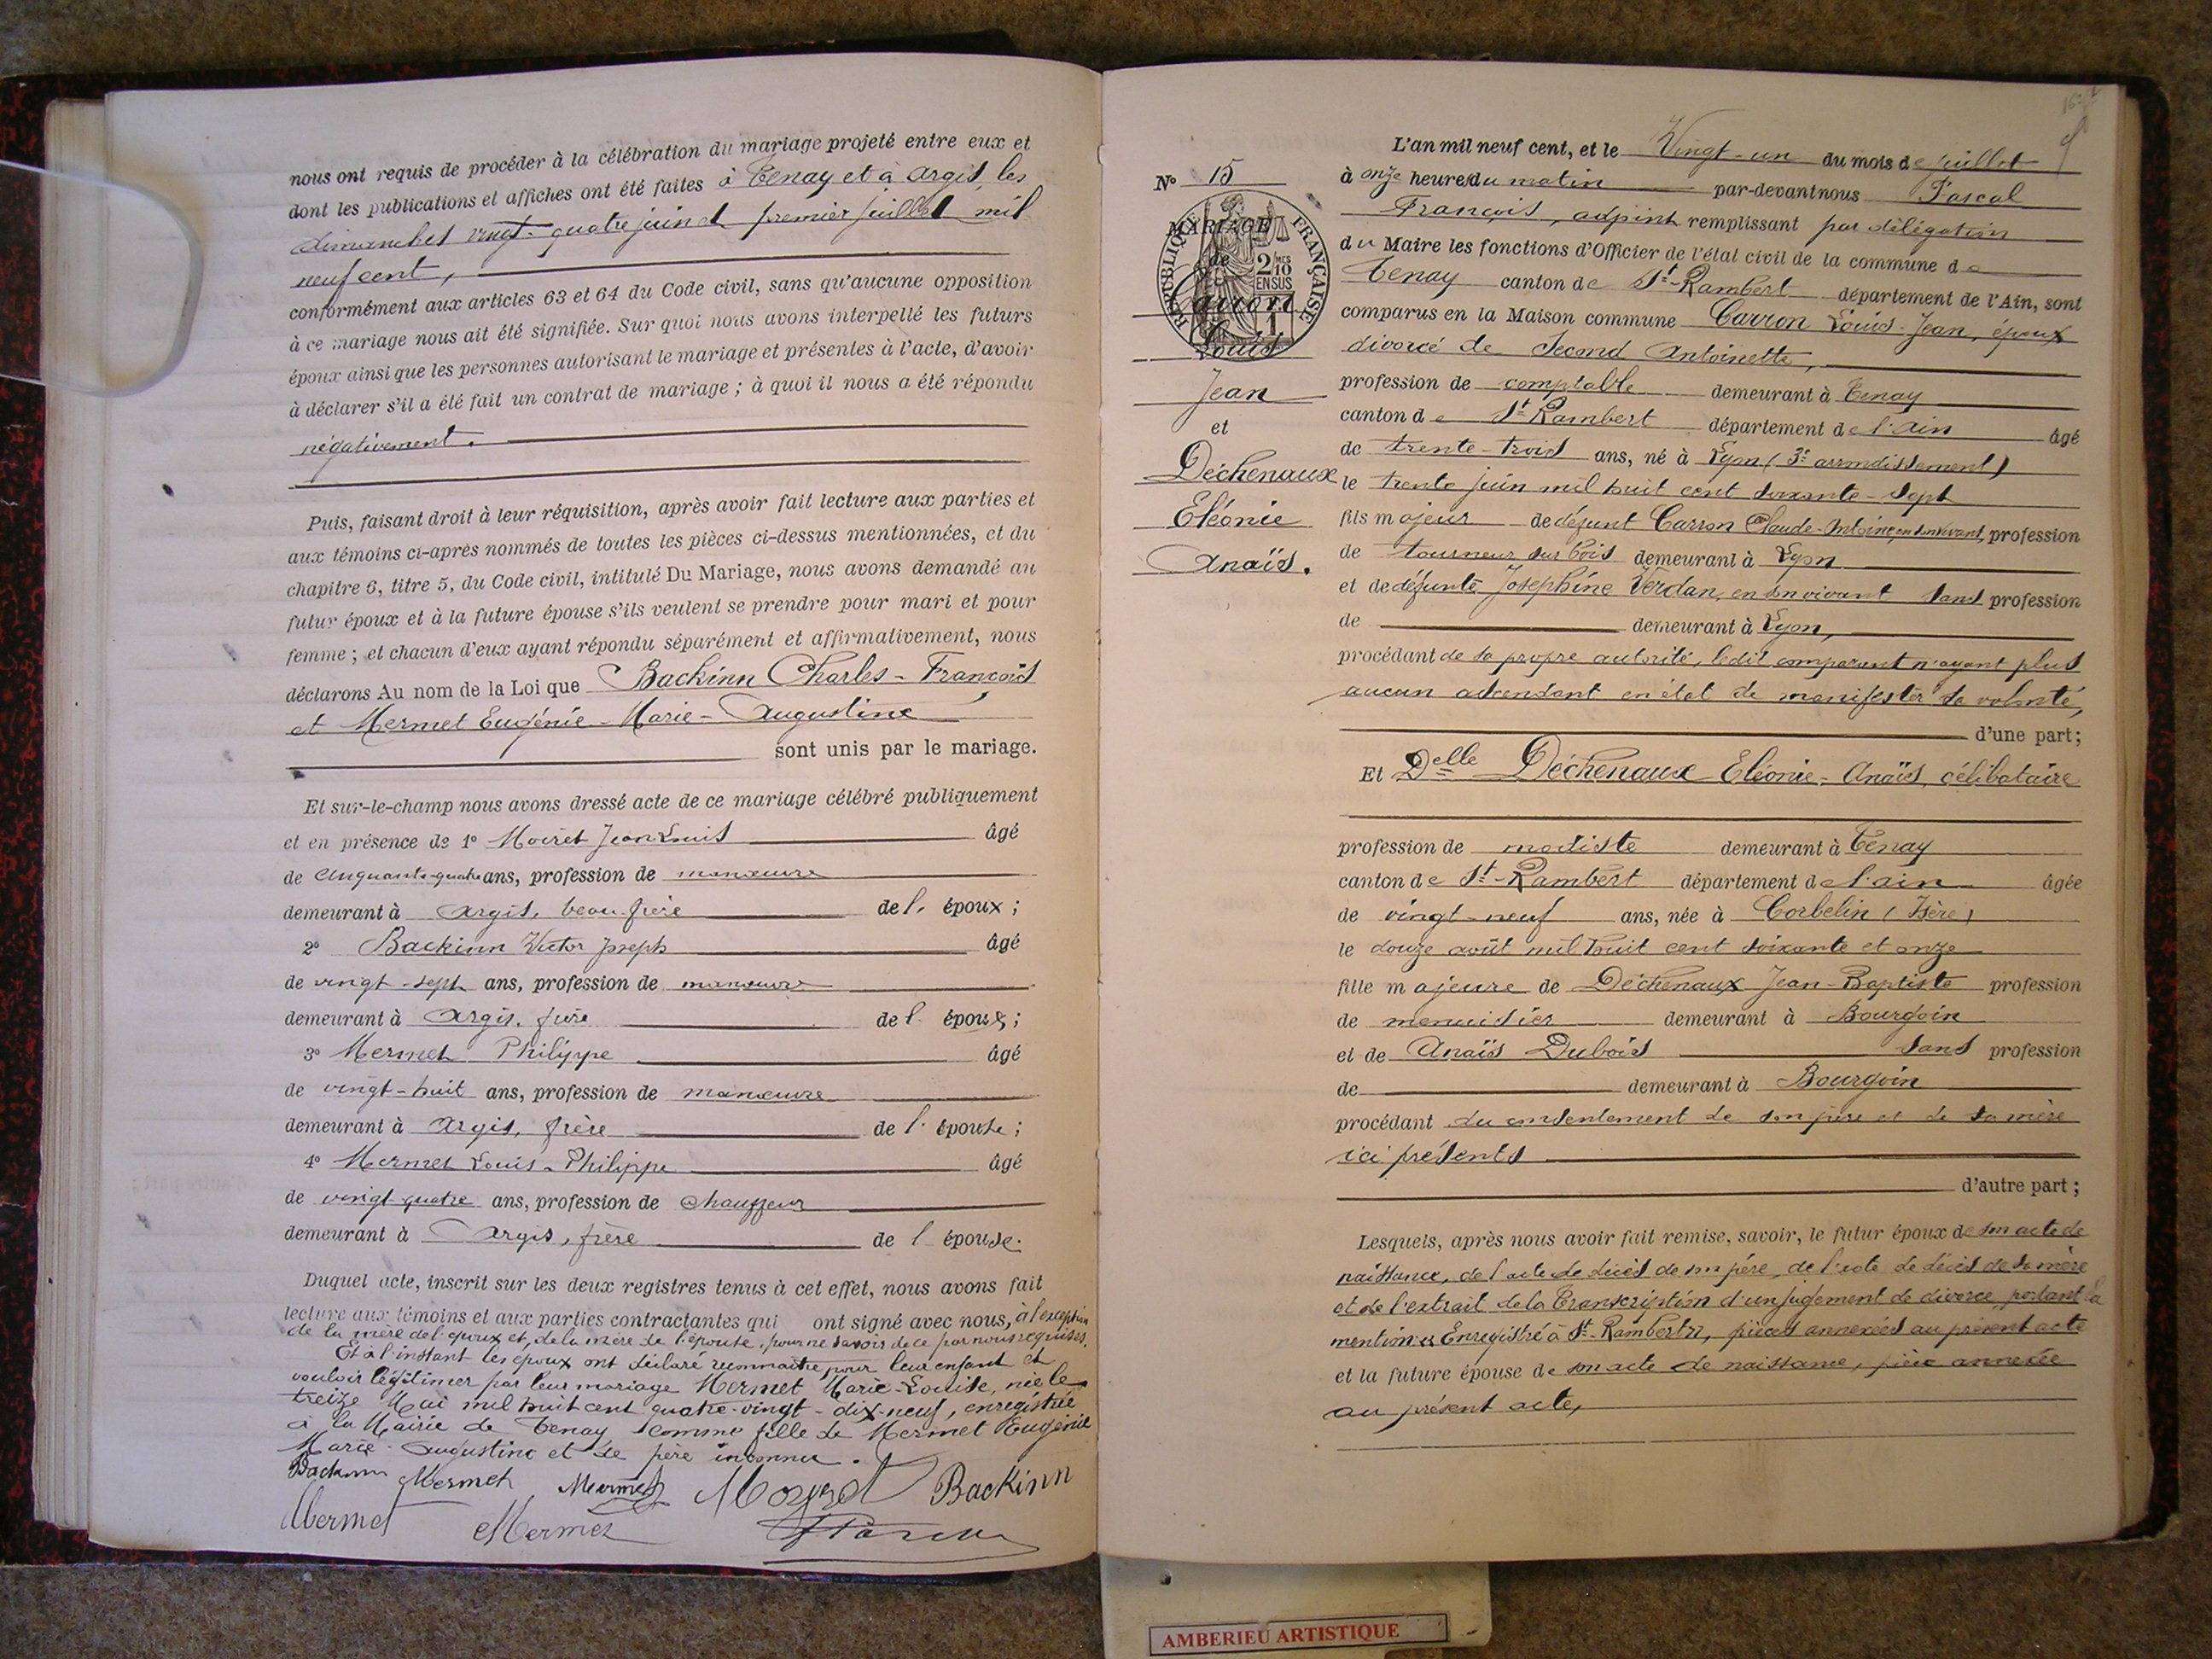 nous ont requis de procéder à la célébration du mariage projeté entre eux et
dont les publications et affiches ont été faites à Tenay et à Argis, les
dimanches vingt-quatre juin et premier juillet mil
neuf cent,
conformément aux articles 63 et 64 du Code civil, sans qu'aucune opposition
à ce mariage nous ait été signifiée. Sur quoi nous avons interpellé les futurs
époux ainsi que les personnes autorisant le mariage et présentes à l'acte, d'avoir
à déclarer s'il a été fait un contrat de mariage ; à quoi il nous a été répondu
négativement.
Puis, faisant droit à leur réquisition, après avoir fait lecture aux parties et
aux témoins ci-après nommés de toutes les pièces ci-dessus mentionnées, et du
chapitre 6, titre 5, du Code civil, intitulé Du Mariage, nous avons demandé au
futur époux et à la future épouse s'ils veulent se prendre pour mari et pour
femme ; et chacun d'eux ayant répondu séparément et affirmativement, nous
déclarons Au nom de la Loi que Backinn Charles-François
et Mermet Eugénie-Marie-Augustine
sont unis par le mariage.
Et sur-le-champ nous avons dressé acte de ce mariage célébré publiquement
et en présence de 1° Moiret Jean-Louis âgé
de cinquante-quatre ans, profession de manœuvre
demeurant à Argis, beau-frère de l' époux ;
2° Backinn Victor Joseph âgé
de vingt-sept ans, profession de manœuvre
demeurant à Argis, frère de l' époux ;
3° Mermet Philippe âgé
de vingt-huit ans, profession de manœuvre
demeurant à Argis, frère de l' épouse ;
4° Mermet Louis-Philippe âgé
de vingt-quatre ans, profession de chauffeur
demeurant à Argis, frère de l' épouse.
Duquel acte, inscrit sur les deux registres tenus à cet effet, nous avons fait
lecture aux témoins et aux parties contractantes qui ont signé avec nous, à l'exception
de la mère de l'époux et, de la mère de l'épouse, pour ne savoir de ce par nous requises.
Et à l'instant les époux ont déclaré reconnaître pour leur enfant et
vouloir légitimer par leur mariage Mermet Marie-Louise, née le
treize Mai mil huit cent quatre-vingt-dix-neuf, enregistrée
à la Mairie de Tenay comme fille de Mermet Eugénie
Marie-Augustine et de père inconnu.
Backinn Mermet Mermet Moiret Backinn
Mermet Mermet
16
N° 15
MARIAGE
RÉPUBLIQUE FRANÇAISE
2 MES
10
EN SUS
1
de
Carron
Louis
Jean
et
Déchenaux
Eléonie
Anaïs.
L'an mil neuf cent, et le Vingt-un du mois de juillet
à onze heures du matin par-devant nous Pascal
François, adjoint remplissant par délégation
du Maire les fonctions d'Officier de l'état civil de la commune de
Tenay canton de St-Rambert département de l'Ain, sont
comparus en la Maison commune Carron Louis-Jean, époux
divorcé de Second Antoinette,
profession de comptable demeurant à Tenay
canton de St-Rambert département de l'Ain âgé
de trente-trois ans, né à Lyon (3e arrondissement)
le trente juin mil huit cent soixante-sept
fils majeur de défunt Carron Claude-Antoine en son vivant, profession
de tourneur sur bois demeurant à Lyon
et de défunte Joséphine Verdan, en son vivant sans profession
de demeurant à Lyon,
procédant de sa propre autorité, ledit comparant n'ayant plus
aucun ascendant en état de manifester sa volonté,
d'une part ;
Et Delle Déchenaux Eléonie-Anaïs, célibataire
profession de modiste demeurant à Tenay
canton de St-Rambert département de l'Ain âgée
de vingt-neuf ans, née à Corbelin (Isère)
le douze août mil huit cent soixante et onze
fille majeure de Déchenaux Jean-Baptiste profession
de menuisier demeurant à Bourgoin
et de Anaïs Dubois sans profession
de demeurant à Bourgoin
procédant du consentement de son père et de sa mère
ici présents
d'autre part ;
Lesquels, après nous avoir fait remise, savoir, le futur époux de son acte de
naissance, de l'acte de décès de son père, de l'acte de décès de sa mère
et de l'extrait de la transcription d'un jugement de divorce portant la
mention « Enregistré à St-Rambert », pièces annexées au présent acte
et la future épouse de son acte de naissance, pièce annexée
au présent acte,
AMBERIEU ARTISTIQUE